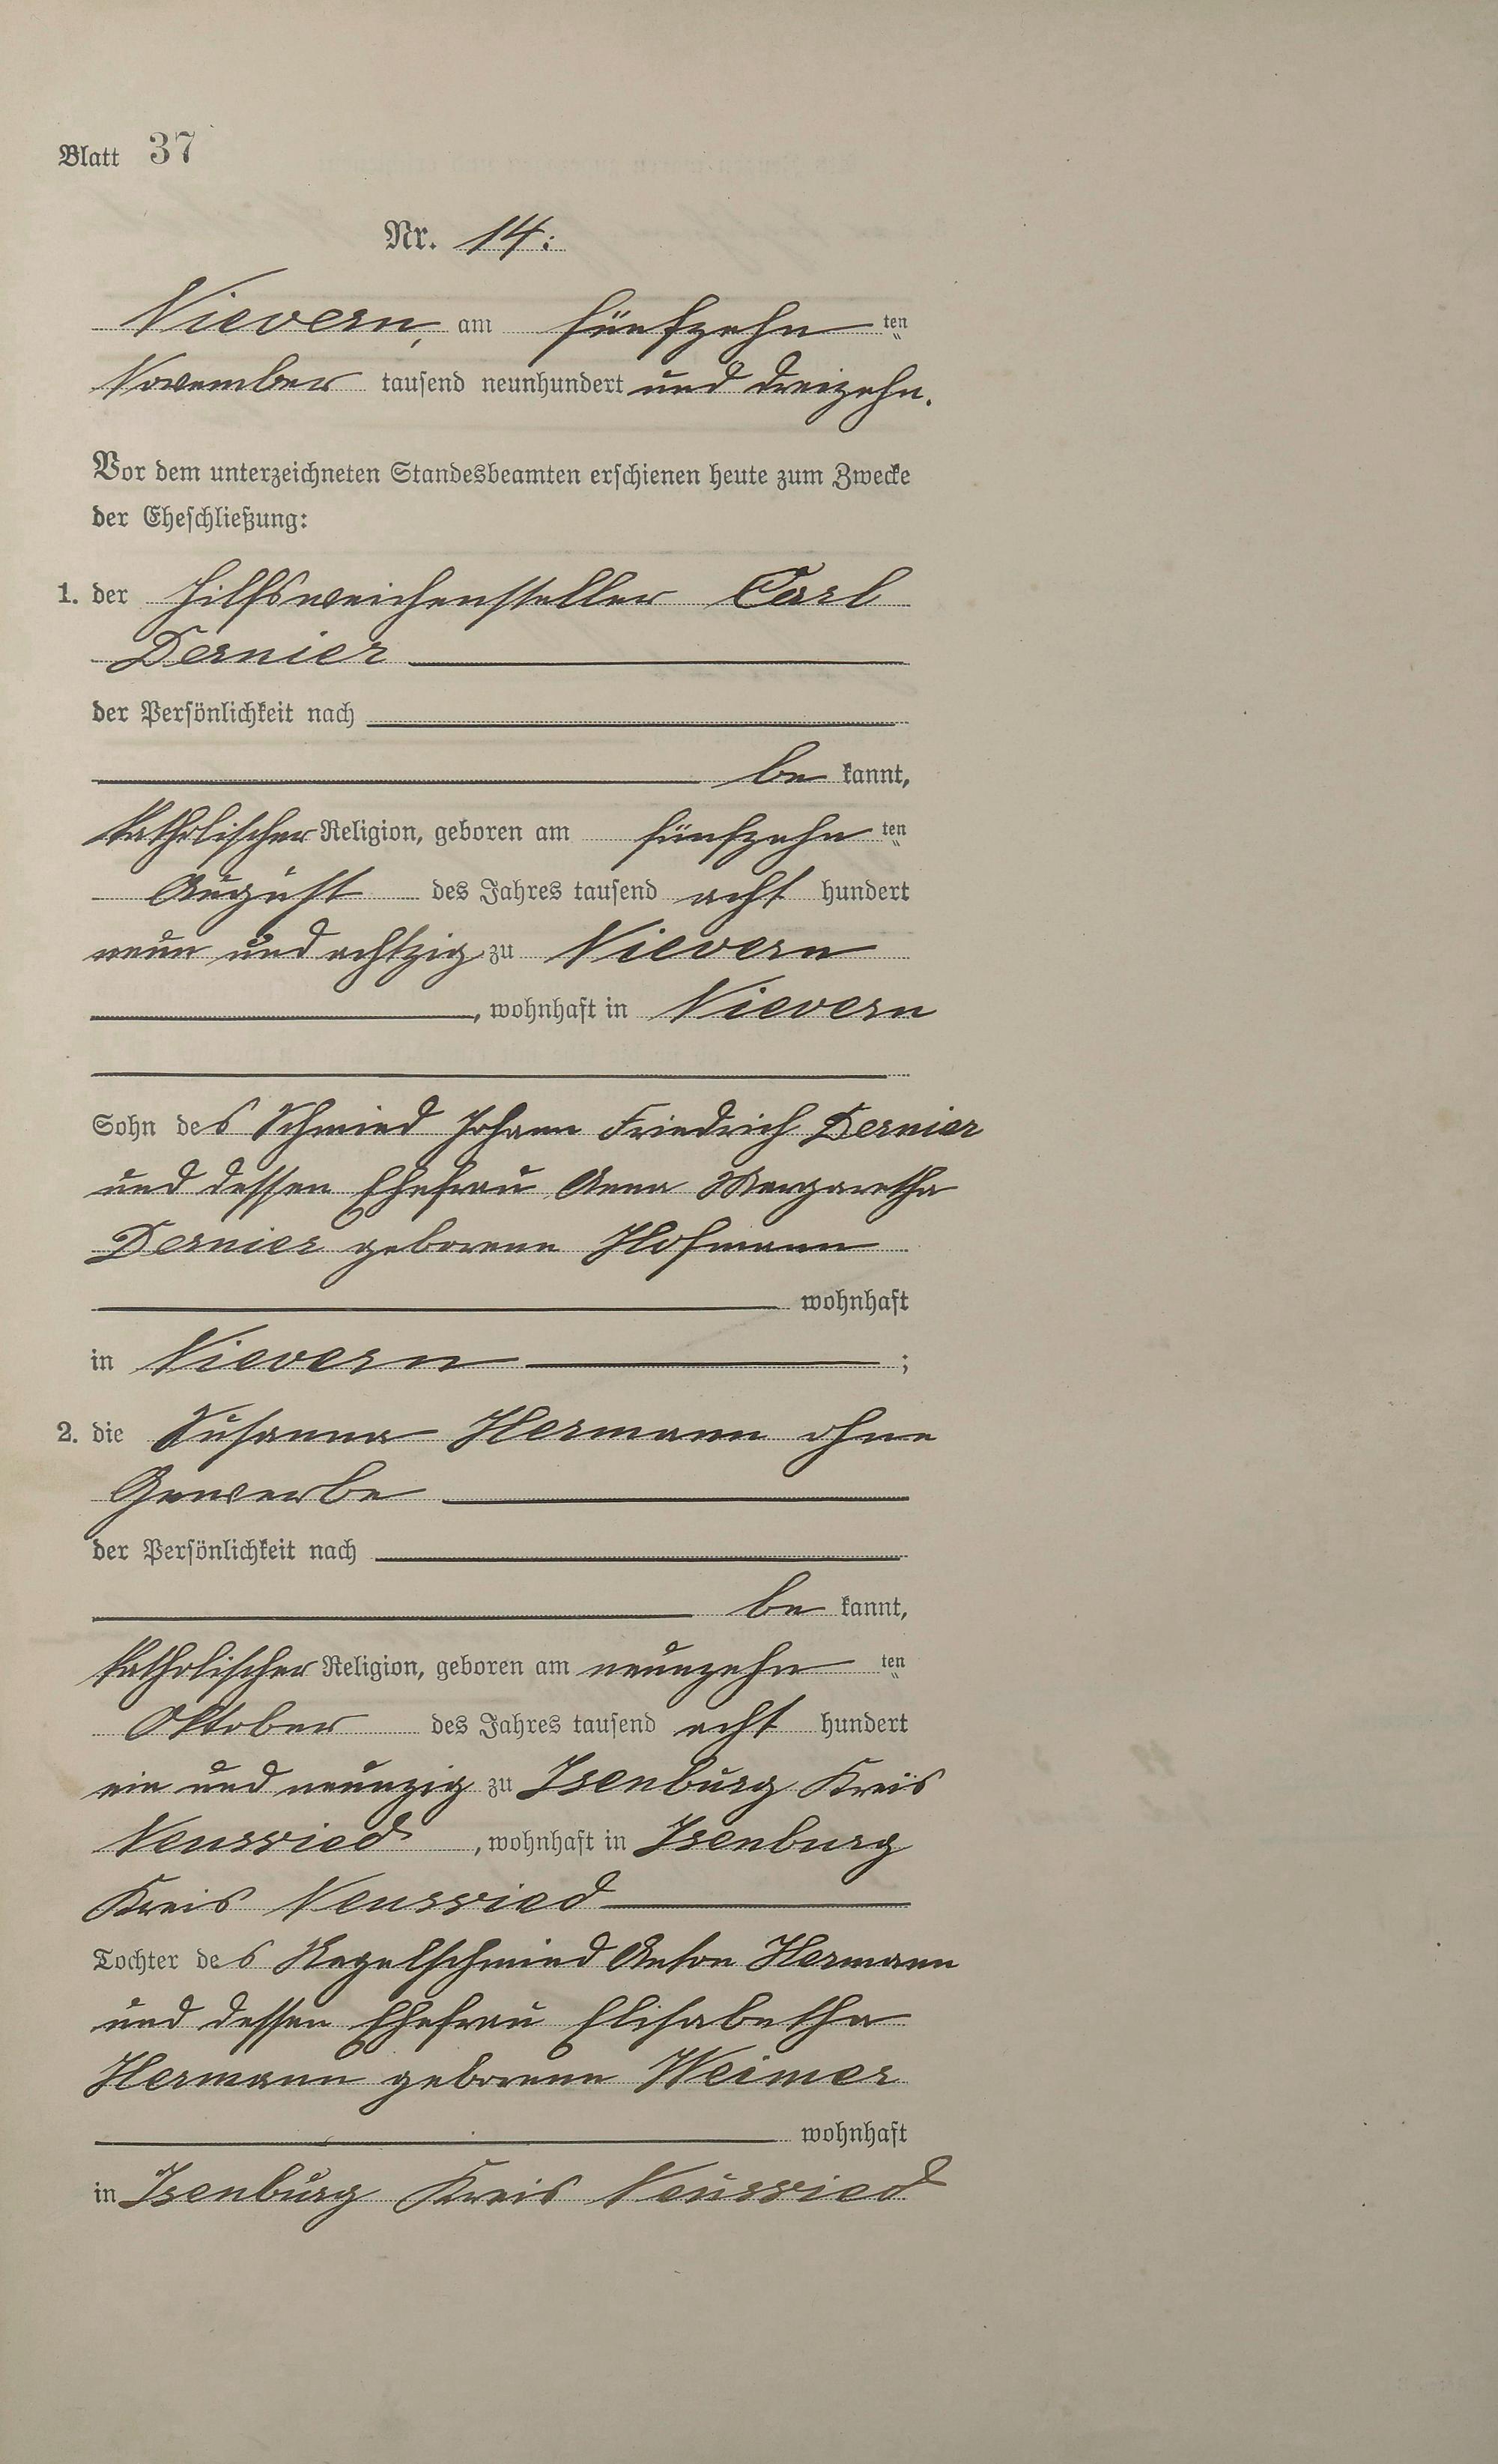 Blatt 37
Nr. 14.
Nievern, am fünfzehn ten
November tausend neunhundert und dreizehn.
Vor dem unterzeichneten Standesbeamten erschienen heute zum Zwecke
der Eheschließung:
1. der Hilfsweichensteller Carl
Dernier
der Persönlichkeit nach
be kannt,
katholischer Religion, geboren am fünfzehn ten
August des Jahres tausend acht hundert
neun und achtzig zu Nievern
, wohnhaft in Nievern
Sohn des Schmied Johann Friedrich Dernier
und dessen Ehefrau Anna Margaretha
Dernier geborene Hofmann
wohnhaft
in Nievern ;
2. die Susanna Hermann ohne
Gewerbe
der Persönlichkeit nach
be kannt,
katholischer Religion, geboren am neunzehn ten
Oktober des Jahres tausend acht hundert
ein und neunzig zu Isenburg Kreis
Neuwied , wohnhaft in Isenburg
Kreis Neuwied
Tochter des Nagelschmied Anton Hermann
und dessen Ehefrau Elisabetha
Hermann geborene Weimer
wohnhaft
in Isenburg Kreis Neuwied